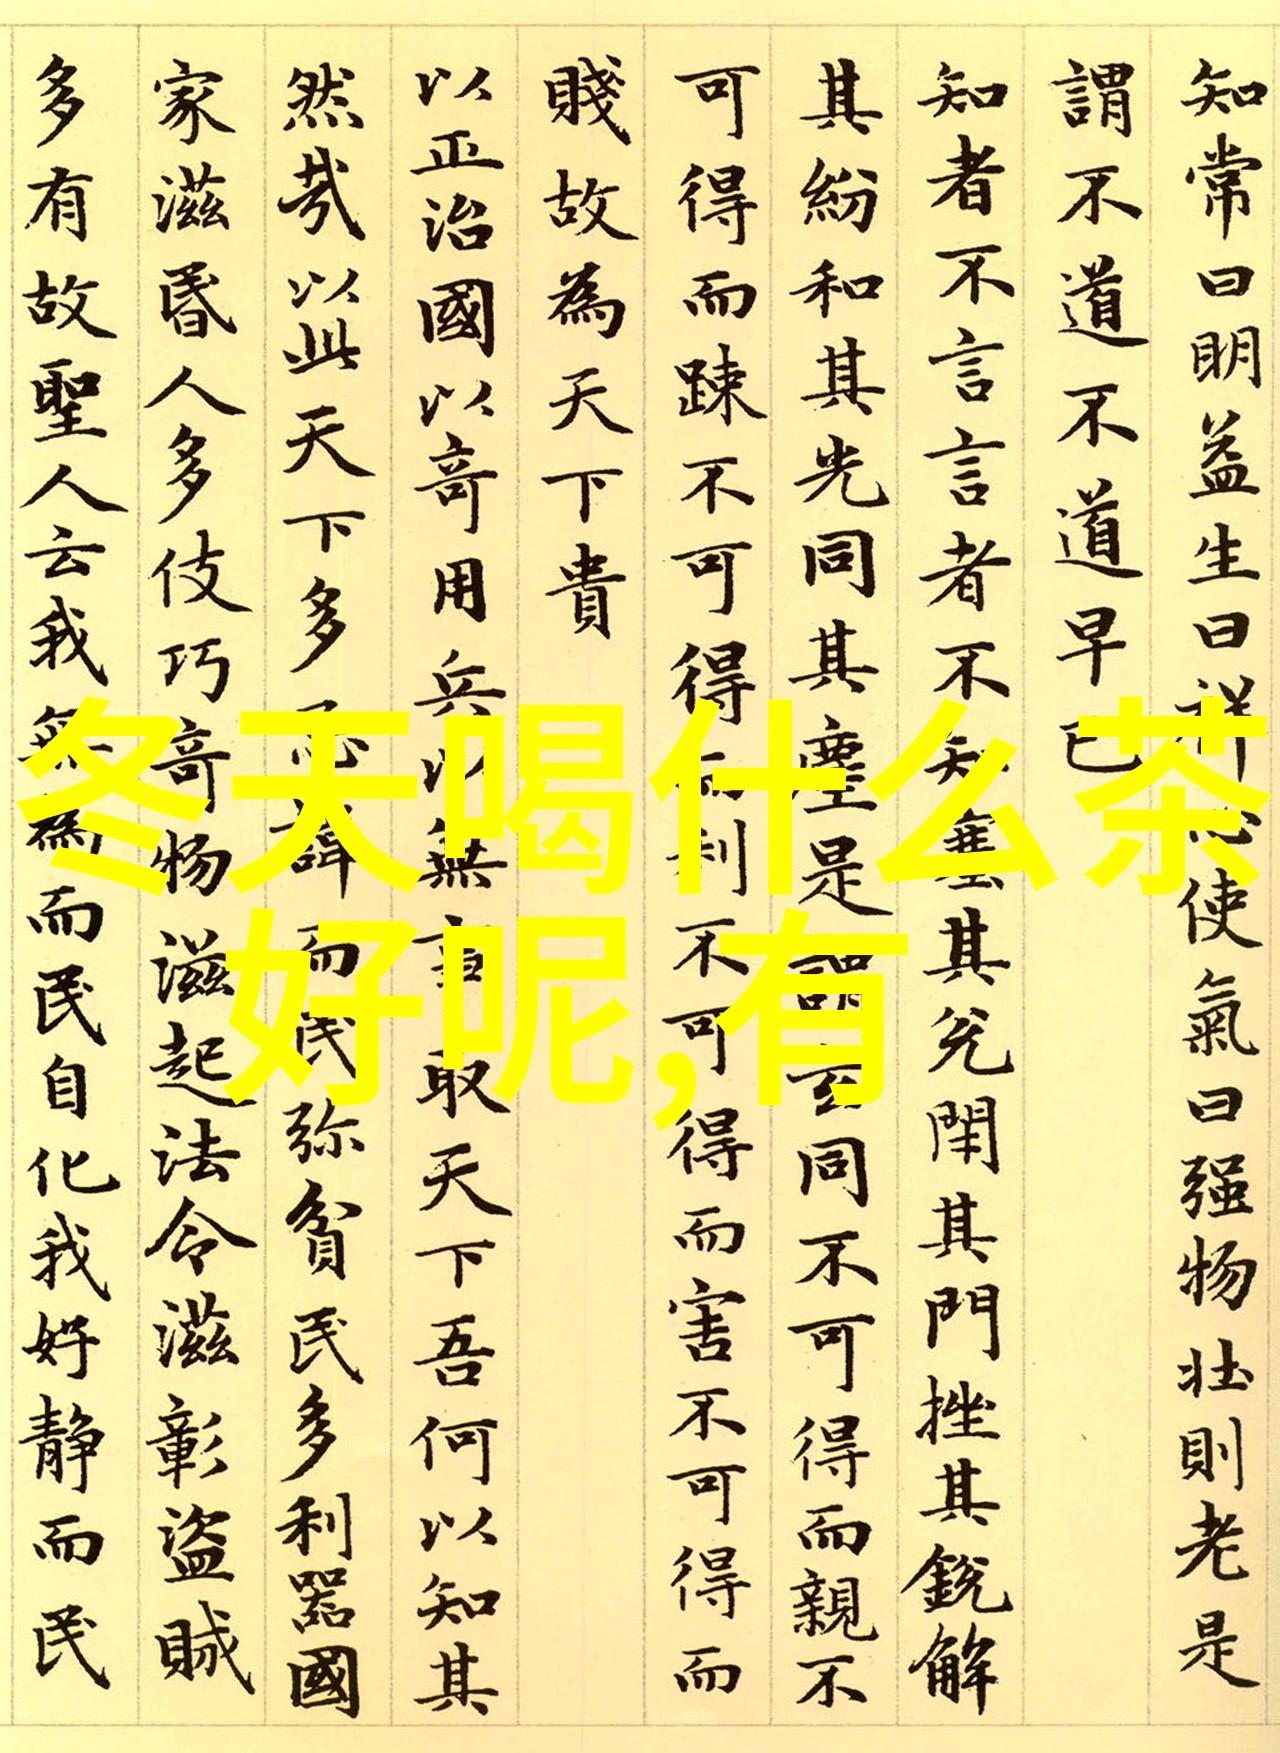 知常曰明益生曰祥心使氣曰强物壯則老是
謂不道不道早已
知者不言言者不知塞其兌閉其門挫其銳解
其紛和其光同其塵是謂玄同不可得而親不
可得而踈不可得而利不可得而害不可得而
賤故為天下貴
以正治國以奇用兵以無事取天下吾何以知其
然哉以此天下多忌諱而民弥貧民多利器國
家滋昏人多伎巧奇物滋起法令滋彰盜賊
多有故聖人云我無為而民自化我好静而民
冬天喝什么茶
好呢,有